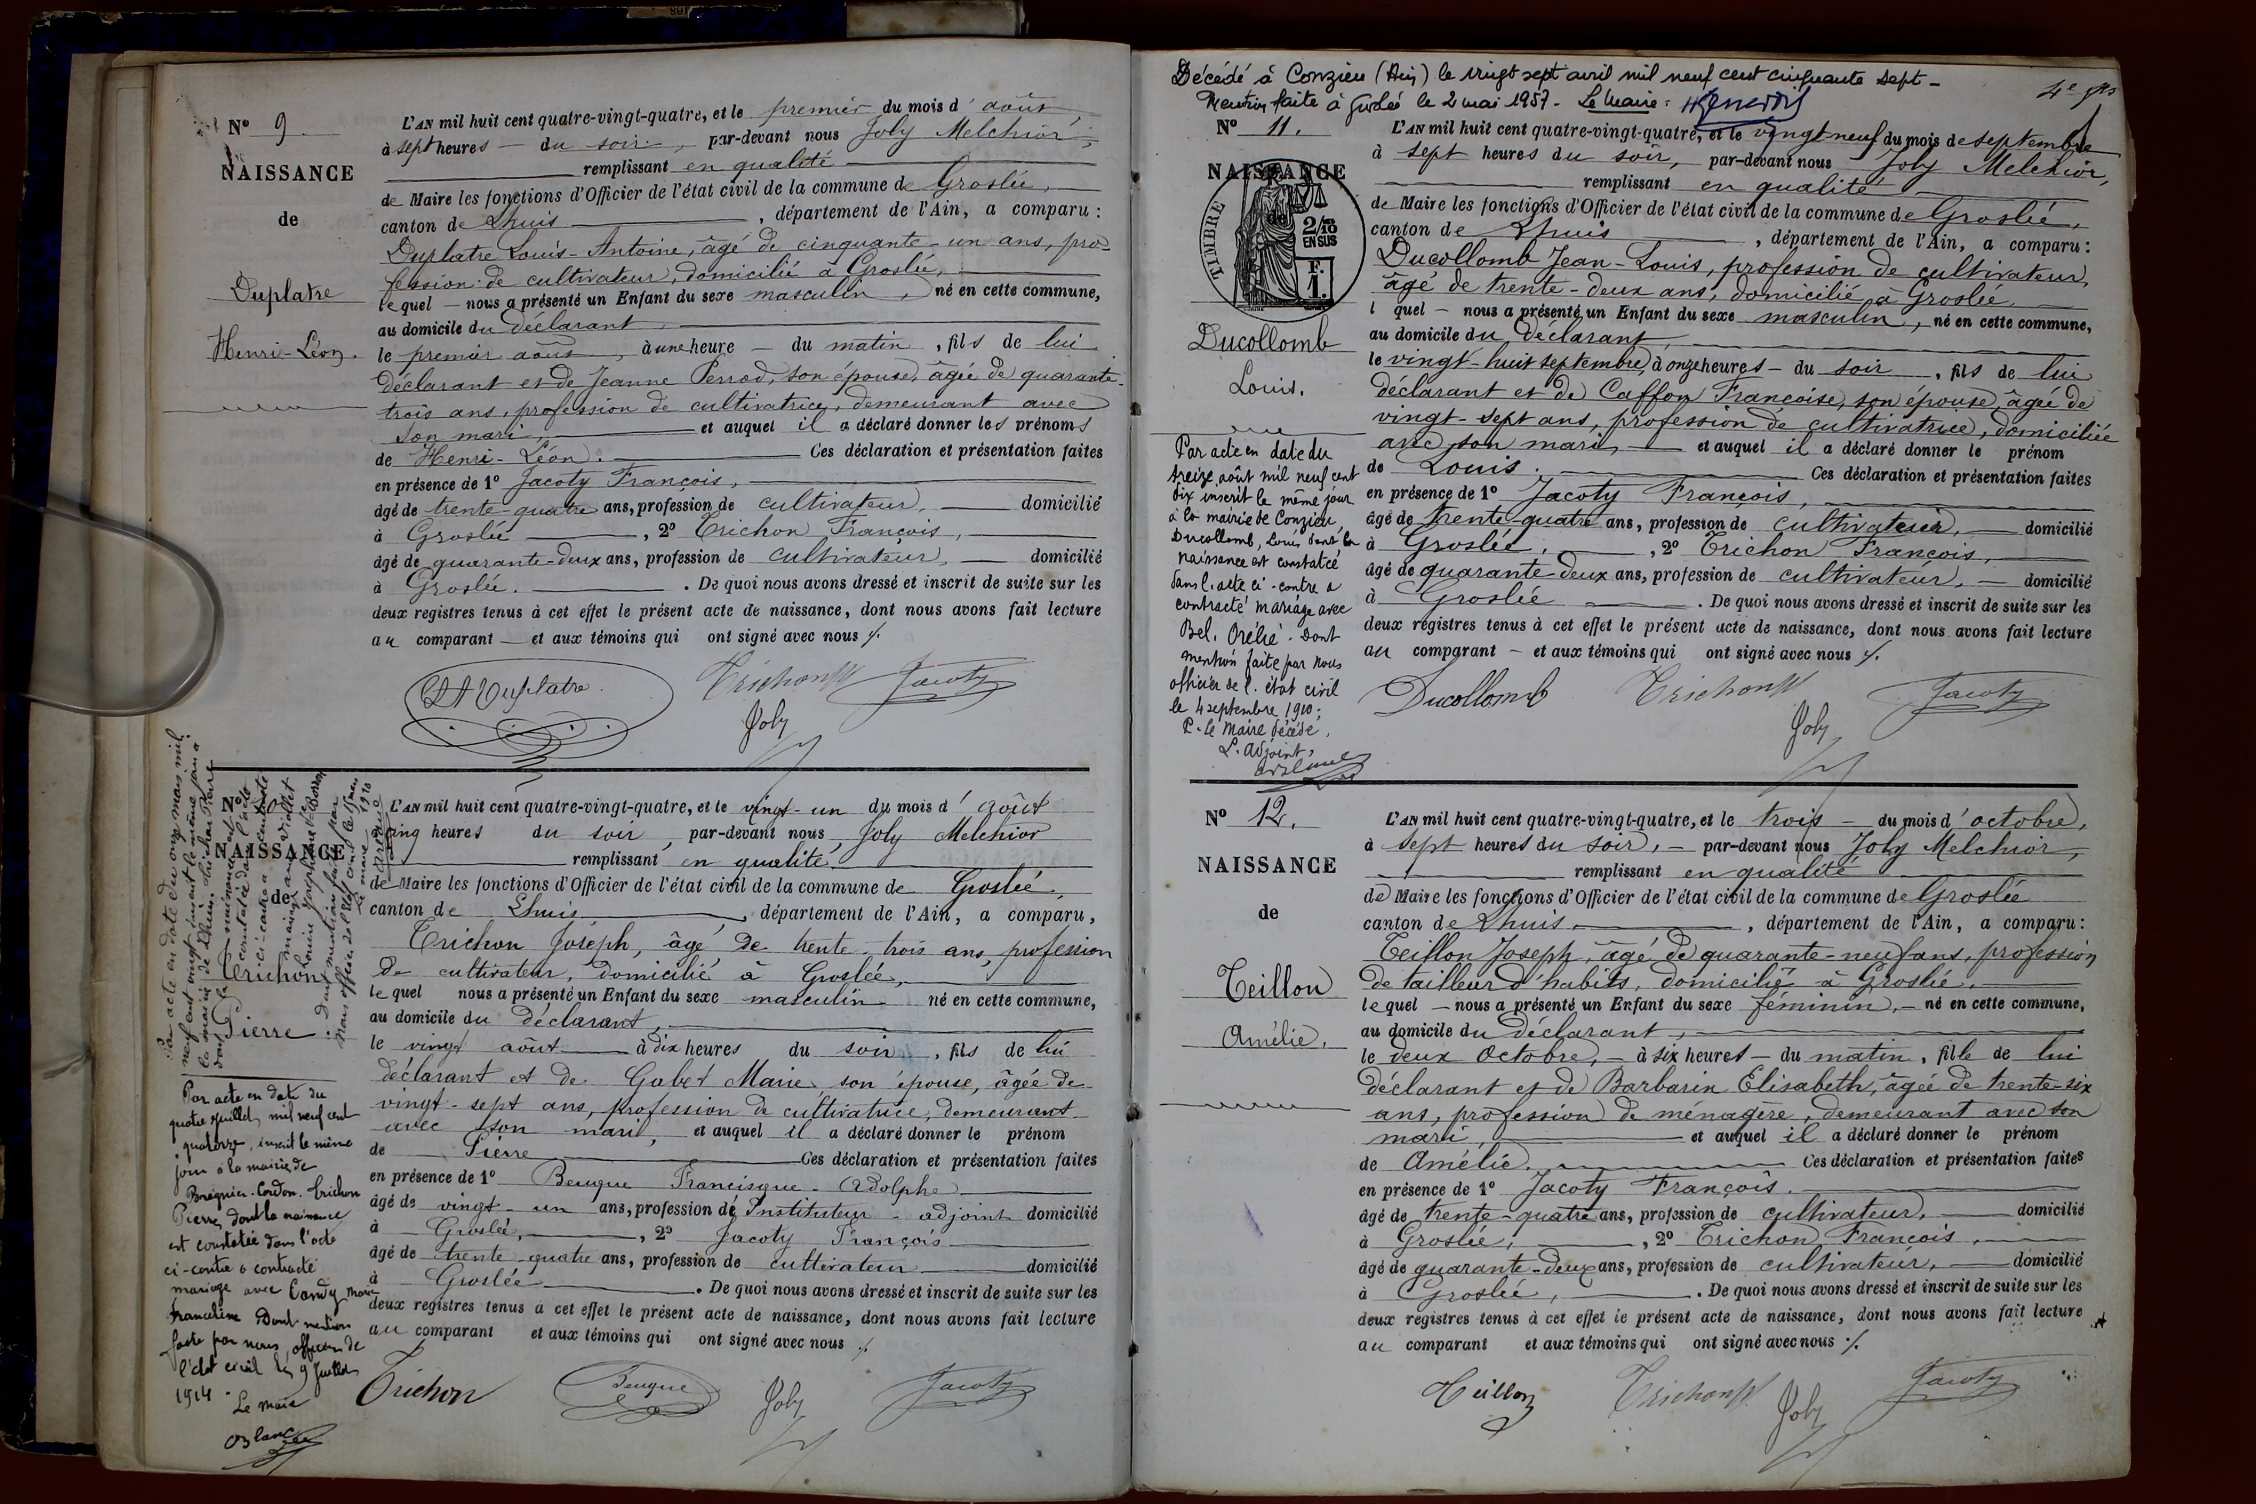 N° 9
NAISSANCE
de
Duplatre
Henri-Léon.
L'AN mil huit cent quatre-vingt-quatre, et le premier du mois d'août
à sept heures du soir, par-devant nous Joly Melchior,
remplissant en qualité
de Maire les fonctions d'Officier de l'état civil de la commune de Groslée,
canton de Lhuis, département de l'Ain, a comparu :
Duplatre Louis-Antoine, âgé de cinquante-un ans, pro-
fession de cultivateur, domicilié à Groslée,
lequel nous a présenté un Enfant du sexe masculin, né en cette commune,
au domicile du déclarant,
le premier août, à une heure du matin, fils de lui
déclarant et de Jeanne Perrod, son épouse, âgée de quarante-
trois ans, profession de cultivatrice, demeurant avec
son mari, et auquel il a déclaré donner les prénoms
de Henri-Léon. Ces déclaration et présentation faites
en présence de 1° Jacoty François,
âgé de trente-quatre ans, profession de cultivateur, domicilié
à Groslée, 2° Trichon François,
âgé de quarante-deux ans, profession de cultivateur, domicilié
à Groslée. De quoi nous avons dressé et inscrit de suite sur les
deux registres tenus à cet effet le présent acte de naissance, dont nous avons fait lecture
au comparant et aux témoins qui ont signé avec nous ./.
Duplatre Trichon Jacoty
Joly
NAISSANCE
de
Trichon
Pierre
L'AN mil huit cent quatre-vingt-quatre, et le vingt-un du mois d'août
cinq heures du soir par-devant nous Joly Melchior
remplissant en qualité
de Maire les fonctions d'Officier de l'état civil de la commune de Groslée
canton de Lhuis, département de l'Ain, a comparu,
Trichon Joseph, âgé de trente-trois ans, profession
de cultivateur, domicilié à Groslée,
lequel nous a présenté un Enfant du sexe masculin né en cette commune,
au domicile du déclarant,
le vingt août à dix heures du soir, fils de lui
déclarant et de Gabet Marie son épouse, âgée de
vingt-sept ans, profession de cultivatrice, demeurant
avec son mari, et auquel il a déclaré donner le prénom
de Pierre Ces déclaration et présentation faites
en présence de 1° Beuque Francisque-Adolphe
âgé de vingt-un ans, profession de Instituteur-adjoint domicilié
à Groslée, 2° Jacoty François
âgé de trente-quatre ans, profession de cultivateur domicilié
à Groslée. De quoi nous avons dressé et inscrit de suite sur les
deux registres tenus à cet effet le présent acte de naissance, dont nous avons fait lecture
au comparant et aux témoins qui ont signé avec nous ./.
Trichon Beuque Joly Jacoty
Par acte en date du
quatre juillet mil neuf cent
quatorze, inscrit le même
jour à la mairie de
Brégnier-Cordon. Trichon
Pierre, dont la naissance
est constatée dans l'acte
ci-contre a contracté
mariage avec Candy Marie
Franceline Dont mention
faite par nous, officier de
l'état civil le 9 Juillet
1914.
Le Maire
Décédé à Conzieu (Ain) le vingt sept avril mil neuf cent cinquante sept -
Mention faite à Groslée le 2 mai 1957. Le Maire :
N° 11.
NAISSANCE
de
TIMBRE
2/10
EN SUS
F.
1.
Ducollomb
Louis.
L'AN mil huit cent quatre-vingt-quatre, et le vingt-neuf du mois de septembre
à sept heures du soir, par-devant nous Joly Melchior,
remplissant en qualité
de Maire les fonctions d'Officier de l'état civil de la commune de Groslée,
canton de Lhuis, département de l'Ain, a comparu :
Ducollomb Jean-Louis, profession de cultivateur,
âgé de trente-deux ans, domicilié à Groslée,
l quel nous a présenté un Enfant du sexe masculin, né en cette commune,
au domicile du déclarant,
le vingt-huit septembre, à onze heures du soir, fils de lui
déclarant et de Caffon Françoise, son épouse, âgée de
vingt-sept ans, profession de cultivatrice, domiciliée
avec son mari, et auquel il a déclaré donner le prénom
de Louis. Ces déclaration et présentation faites
en présence de 1° Jacoty François,
âgé de trente-quatre ans, profession de cultivateur, domicilié
à Groslée, 2° Trichon François,
âgé de quarante-deux ans, profession de cultivateur, domicilié
à Groslée. De quoi nous avons dressé et inscrit de suite sur les
deux registres tenus à cet effet le présent acte de naissance, dont nous avons fait lecture
au comparant et aux témoins qui ont signé avec nous ./.
Ducollomb Trichon Jacoty
Joly
Par acte en date du
treize août mil neuf cent
dix inscrit le même jour
à la mairie de Conzieu,
Ducollomb, Louis dont la
naissance est constatée
dans l'acte ci-contre a
contracté mariage avec
Bel. Orélie. Dont
mention faite par nous
officier de l'état civil
le 4 septembre 1910 ;
P. le Maire décédé,
L'adjoint,
N° 12.
NAISSANCE
de
Teillon
Amélie.
L'AN mil huit cent quatre-vingt-quatre, et le trois du mois d'octobre,
à sept heures du soir, par-devant nous Joly Melchior,
remplissant en qualité
de Maire les fonctions d'Officier de l'état civil de la commune de Groslée
canton de Lhuis, département de l'Ain, a comparu :
Teillon Joseph, âgé de quarante-neuf ans, profession
de tailleur d'habits, domicilié à Groslée,
lequel nous a présenté un Enfant du sexe féminin, né en cette commune,
au domicile du déclarant,
le deux octobre, à six heures du matin, fille de lui
déclarant et de Barbarin Elisabeth, âgée de trente-six
ans, profession de ménagère, demeurant avec son
mari, et auquel il a déclaré donner le prénom
de Amélie. Ces déclaration et présentation faites
en présence de 1° Jacoty François.
âgé de trente-quatre ans, profession de cultivateur, domicilié
à Groslée, 2° Trichon François,
âgé de quarante-deux ans, profession de cultivateur, domicilié
à Groslée, De quoi nous avons dressé et inscrit de suite sur les
deux registres tenus à cet effet le présent acte de naissance, dont nous avons fait lecture
au comparant et aux témoins qui ont signé avec nous ./.
Teillon Trichon Joly Jacoty